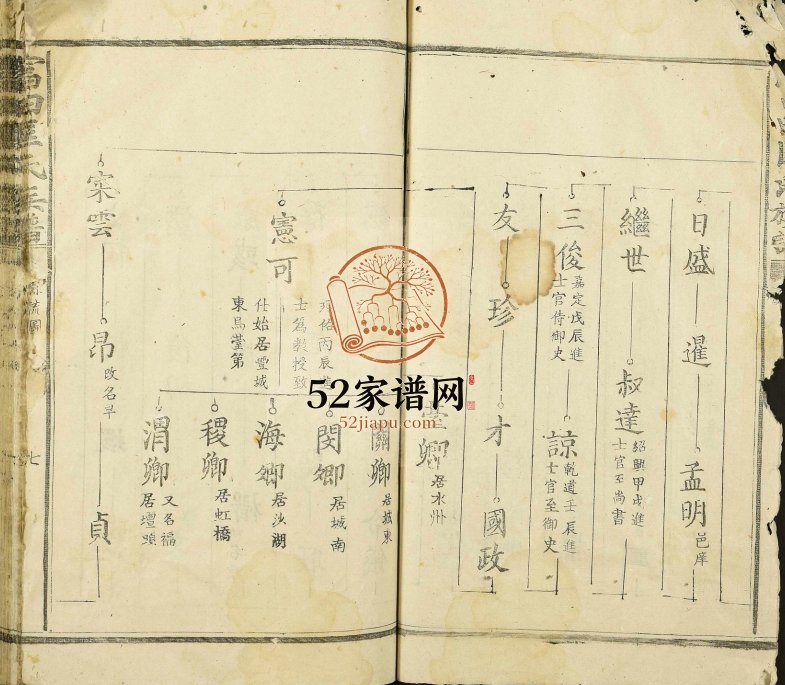 日盛
暹
孟明
邑庠
繼世
叔達
紹興甲戌進
士官至尚書
三俊
嘉定戊辰進
士官侍御史
諒
乾道壬辰進
士官至御史
友珍
才
國政
雲卿
居水州
憲可
丙辰進
士為教授致
仕始居豐城
東鳥薹第
卿
居城東
閔卿
居城南
海卿
居沙湖
稷卿
居虹橋
渭卿
又名福
居壇頭
寀雲
昂
改名早
貞
七
52家谱网
52jiapu.com